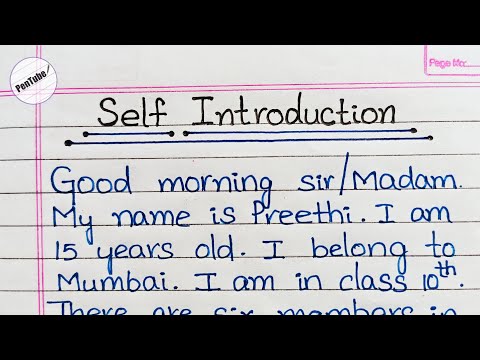 PenTube
Page No:
Self Introduction
Good morning sir/Madam.
My name is Preethi. I am
15 years old. I belong to
Mumbai. I am in class 10th.
There are six members in